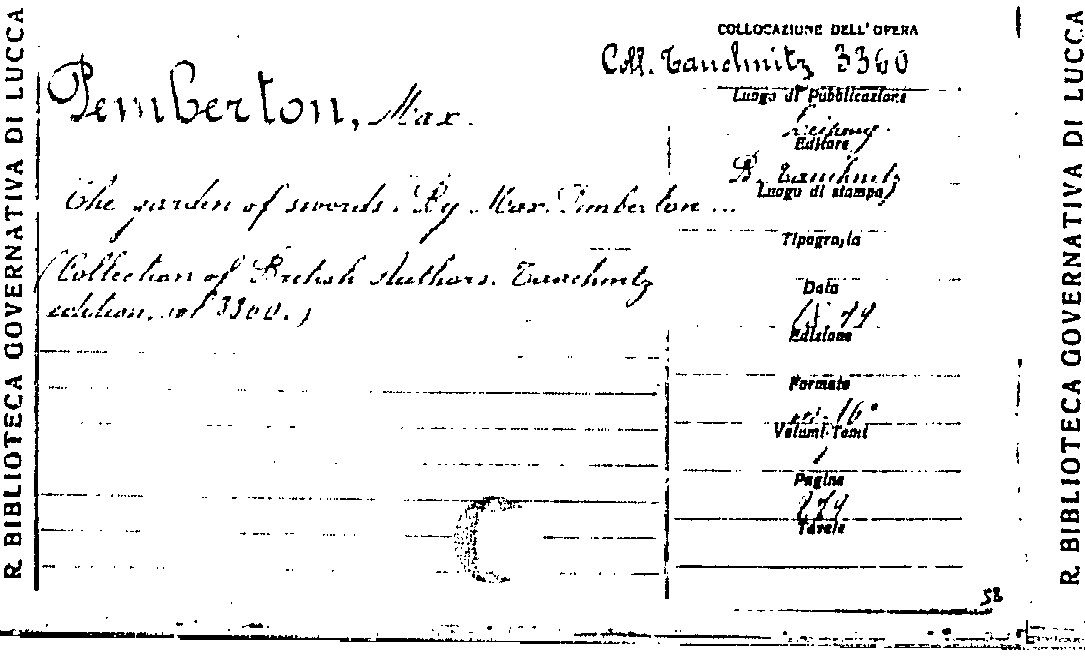 R. BIBLIOTECA GOVERNATIVA DI LUCCA
COLLOCAZIONE DELL'OPERA
Coll. Tauchnitz 3360
Pemberton, Max.
The garden of swords. By Max Pemberton ...
(Collection of British Authors. Tauchnitz
edition, vol 3360.)
Luogo di Pubblicazione
Leipzig.
Editore
B. Tauchnitz
Luogo di stampa
Tipografia
Data
99
Edizione
Formato
16°
Volumi-Tomi
1
Pagine
279
Tavole
58
R. BIBLIOTECA GOVERNATIVA DI LUCCA